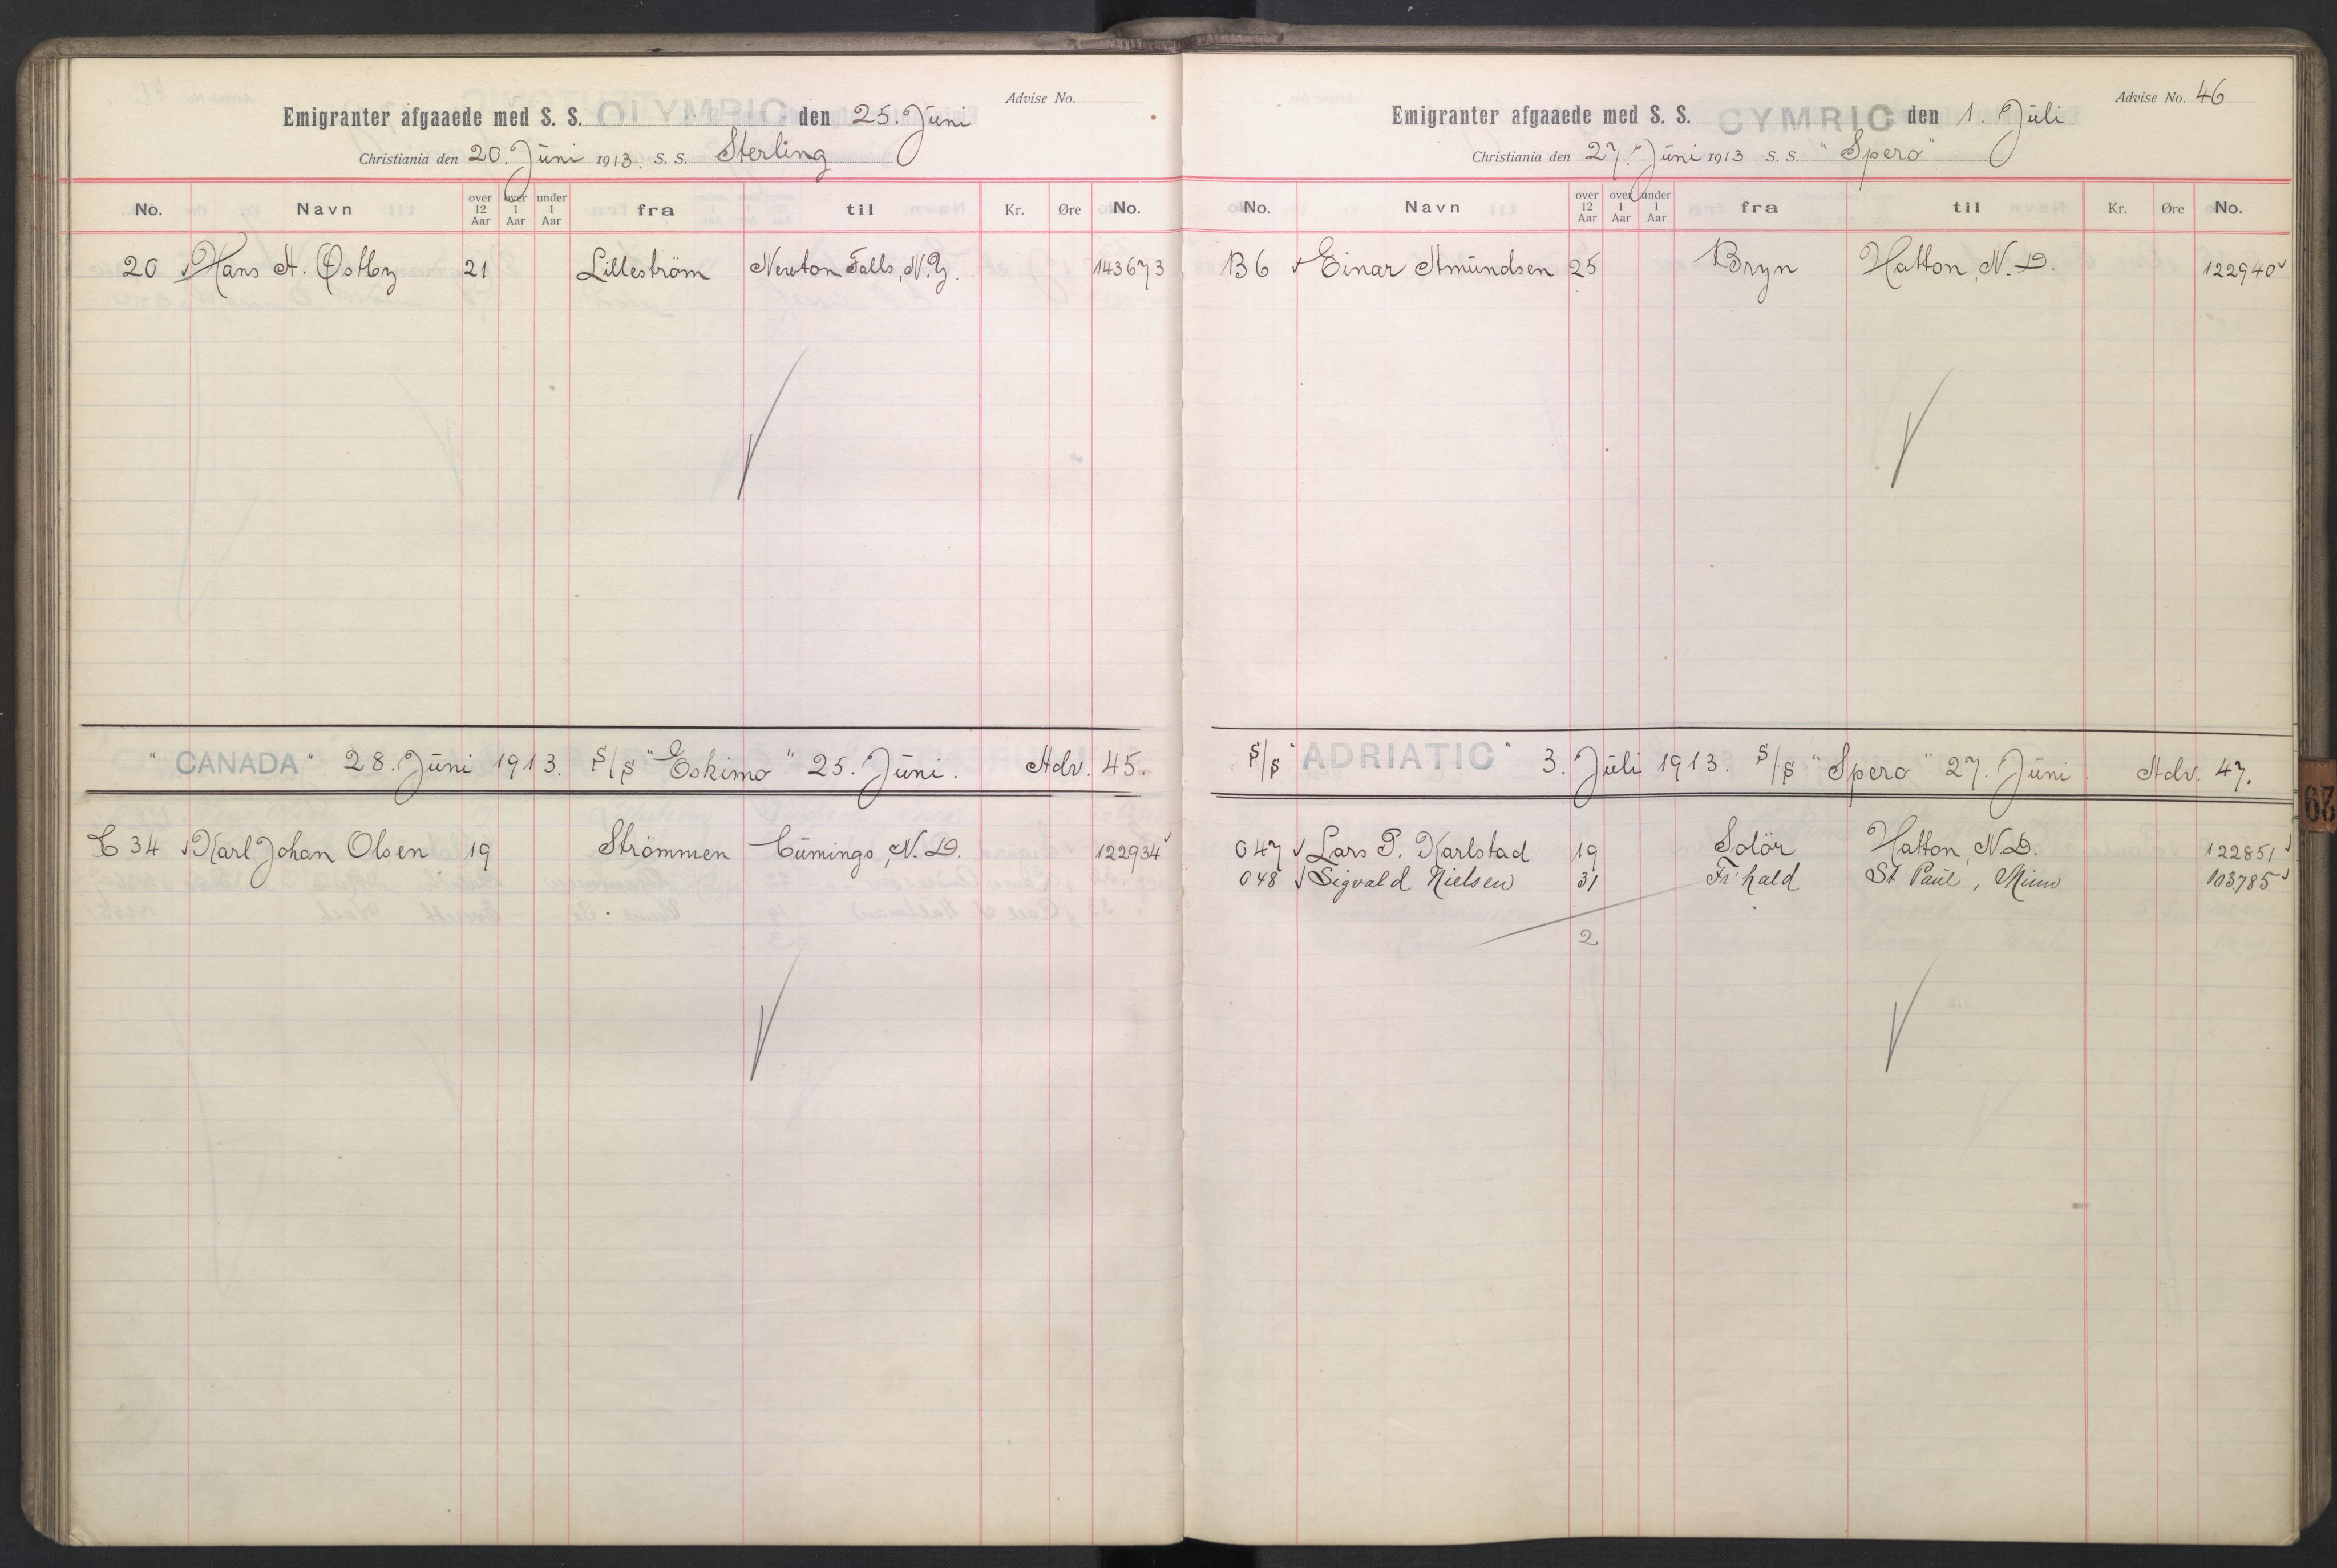 Advise No.
Emigranter afgaaede med S. S. OLYMPIC den 25. Juni
Christiania den 20. Juni 1913. S. S. Sterling
No. Navn over 12 Aar over 1 Aar under 1 Aar fra til Kr. Øre No.
20 Hans A. Østby 21 Lilleström Newton Falls, N.Y. 143673
"CANADA" 28. Juni 1913. S/S "Eskimo" 25. Juni. Adv. 45.
C 34 Karl Johan Olsen 19 Strömmen Cumings, N.D. 122934
Advise No. 46
Emigranter afgaaede med S. S. CYMRIC den 1. Juli
Christiania den 27. Juni 1913 S. S. "Spero"
No. Navn over 12 Aar over 1 Aar under 1 Aar fra til Kr. Øre No.
B 6 Einar Amundsen 25 Bryn Hatton, N.D. 122940
S/S "ADRIATIC" 3. Juli 1913. S/S "Spero" 27. Juni. Adv. 47.
047 Lars P. Karlstad 19 Solör Hatton, N.D. 122851
048 Sigvald Nielsen 31 Fr hald St Paul, Minn 103785
2
29